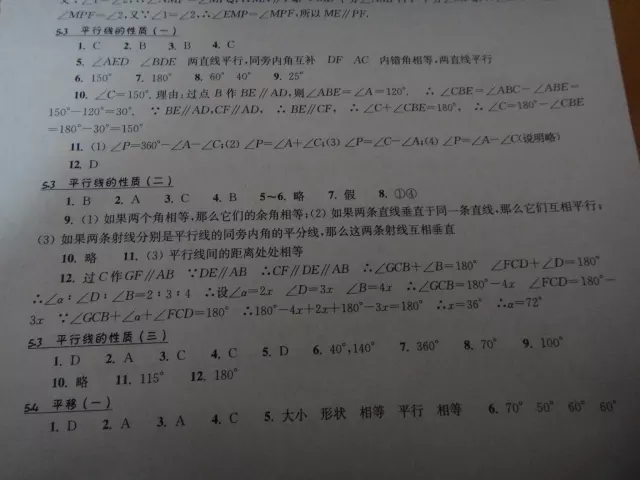 ∠MPF=∠2,又∵∠1=∠2,∴∠EMP=∠MPF,所以ME∥PF.
5.3 平行线的性质(一)
1. C 2. B 3. B 4. C
5. ∠AED ∠BDE 两直线平行,同旁内角互补 DF AC 内错角相等,两直线平行
6. 150° 7. 180° 8. 60° 40° 9. 25°
10. ∠C=150°. 理由:过点B作BE∥AD,则∠ABE=∠A=120°. ∴ ∠CBE=∠ABC-∠ABE=
150°-120°=30°. ∵ BE∥AD,CF∥AD, ∴ BE∥CF, ∴ ∠C+∠CBE=180°, ∴ ∠C=180°-∠CBE
=180°-30°=150°
11. (1) ∠P=360°-∠A-∠C;(2) ∠P=∠A+∠C;(3) ∠P=∠C-∠A;(4) ∠P=∠A-∠C(说明略)
12. D
5.3 平行线的性质(二)
1. B 2. A 3. C 4. B 5~6. 略 7. 假 8. ①④
9. (1) 如果两个角相等,那么它们的余角相等;(2) 如果两条直线垂直于同一条直线,那么它们互相平行;
(3) 如果两条射线分别是平行线的同旁内角的平分线,那么这两条射线互相垂直
10. 略 11. (3) 平行线间的距离处处相等
12. 过C作GF∥AB ∵DE∥AB ∴CF∥DE∥AB ∴∠GCB+∠B=180° ∠FCD+∠D=180°
∴∠α:∠D:∠B=2:3:4 ∴设∠α=2x ∠D=3x ∠B=4x ∴∠GCB=180°-4x ∠FCD=180°-
3x ∵∠GCB+∠α+∠FCD=180° ∴180°-4x+2x+180°-3x=180° ∴x=36° ∴α=72°
5.3 平行线的性质(三)
1. D 2. A 3. C 4. C 5. D 6. 40°,140° 7. 360° 8. 70° 9. 100°
10. 略 11. 115° 12. 180°
5.4 平移(一)
1. D 2. A 3. A 4. C 5. 大小 形状 相等 平行 相等 6. 70° 50° 60° 60°